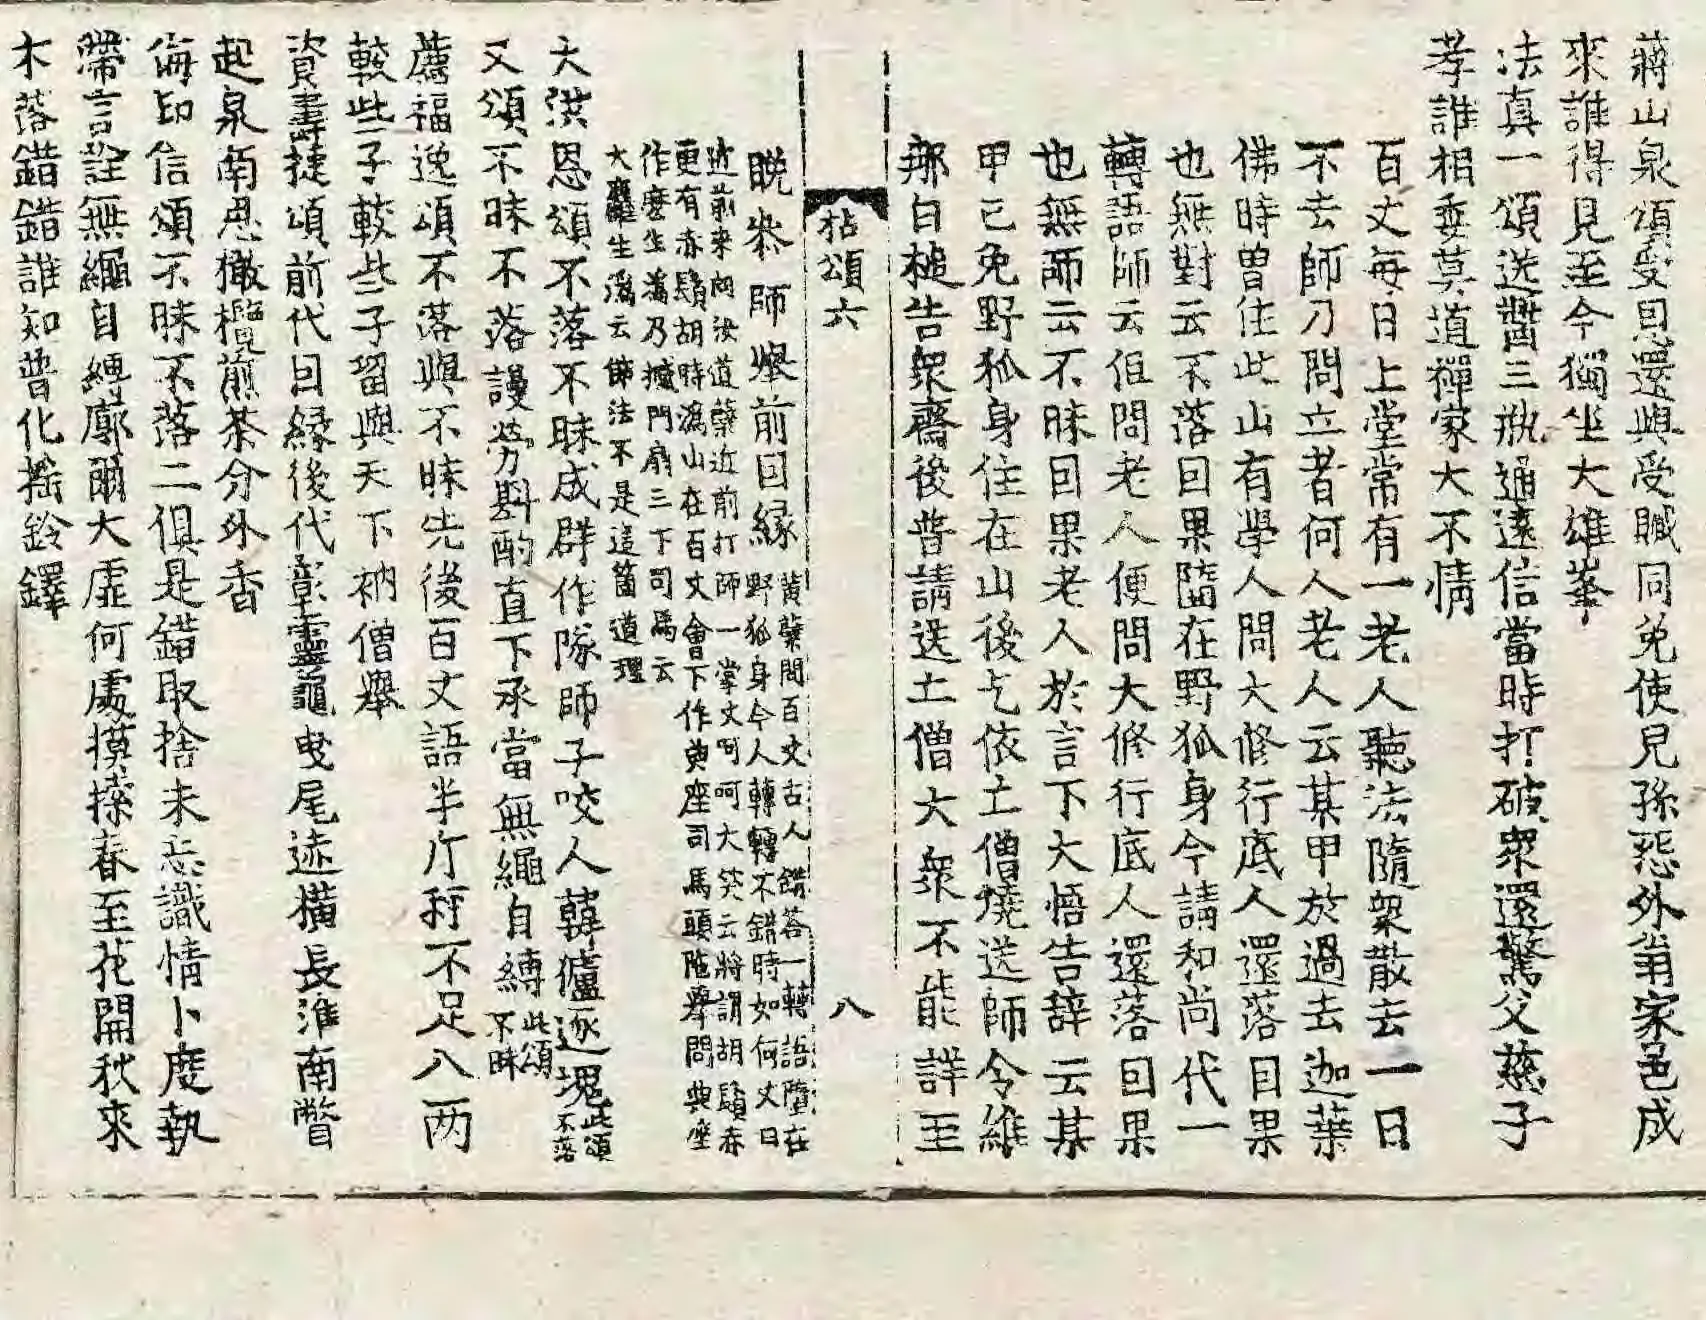 蔣山泉頌受因還與受贓同免使兒孫怨外翁家邑成
來誰得見至今獨坐大雄峯
法真一頌送醬三瓶通遠信當時打破衆還驚父慈子
孝誰相委莫道禪家大不情
百丈每日上堂常有一老人聽法隨衆散去一日
不去師乃問立者何人老人云某甲於過去迦葉
佛時曽住此山有學人問大修行底人還落因果
也無對云不落因果墮在野狐身今請和尚代一
轉語師云伹問老人便問大修行底人還落因果
也無師云不昧因果老人於言下大悟告辝云某
甲已免野狐身住在山後乞依亡僧燒送師令維
那白槌告衆齋後普請送亡僧大衆不能詳至
拈頌六 八
晩叅師擧前因緣黃蘗問百丈古人錯荅一轉語墮在
野狐身今人轉轉不錯時如何丈曰
近前来向汝道蘗近前打師一掌丈呵呵大笑云將謂胡鬚赤
更有赤鬚胡時潙山在百丈會下作典座司馬頭陁擧問典座
作麽生潙乃撼門扇三下司馬云
大麤生潙云佛法不是這箇道理
大洪恩頌不落不昧成群作隊師子咬人韓獹逐塊此頌不落
又頌不昧不落謾勞斟酌直下承當無繩自縛此頌不昧
薦福逸頌不落與不昧先後百丈語半斤秤不足八两
較些子較些子留與天下衲僧擧
資壽捷頌前代因緣後代彰靈龜曳尾迹橫長淮南瞥
起泉南思撤欖煎茶分外香
海印信頌不昧不落二俱是錯取捨未忘識情卜度執
滯言詮無繩自縛廓爾大虛何處摸搽春至花開秋來
木落錯錯誰知普化搖鈴鐸